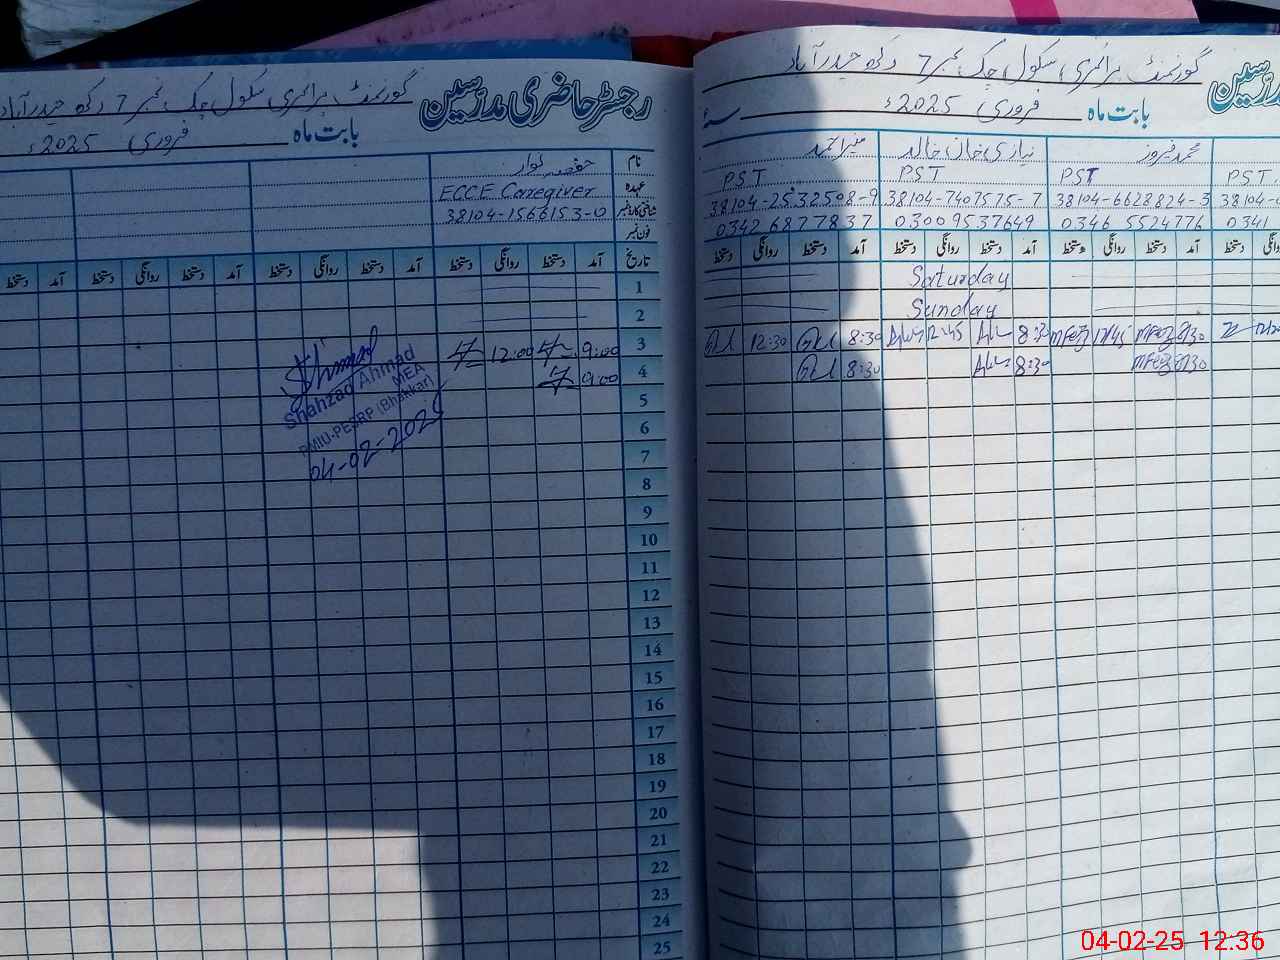 گورنمنٹ پرائمری سکول چک نمبر 7 رکھ حیدرآباد
رجسٹر حاضری مدرسین
بابت ماہ فروری 2025ء
نام
عہدہ ECCE Caregiver
شناختی کارڈ نمبر 38104-1566153-0
فون نمبر
تاریخ آمد دستخط روانگی دستخط آمد دستخط روانگی دستخط آمد دستخط روانگی دستخط آمد دستخط
1
2
3 9:00 12:00
4 9:00
5
6
7
8
9
10
11
12
13
14
15
16
17
18
19
20
21
22
23
24
25
Shahzad Ahmad
MEA
PMIU-PESRP (Bhakkar)
04-02-2025
گورنمنٹ پرائمری سکول چک نمبر 7 رکھ حیدرآباد
مدرسین
بابت ماہ فروری 2025ء
محمد فیروز نیازی خان خالد
PST PST PST PST
38104-2532508-9 38104-7407575-7 38104-6628824-3 38104-
0342 6877837 0300 9537649 0346 5524776 0341
دستخط روانگی دستخط آمد دستخط روانگی دستخط آمد دستخط روانگی دستخط آمد دستخط
Saturday
Sunday
12:30 8:30 12:45 8:30 12:45 8:30
8:30 8:30 8:30
04-02-25 12:36